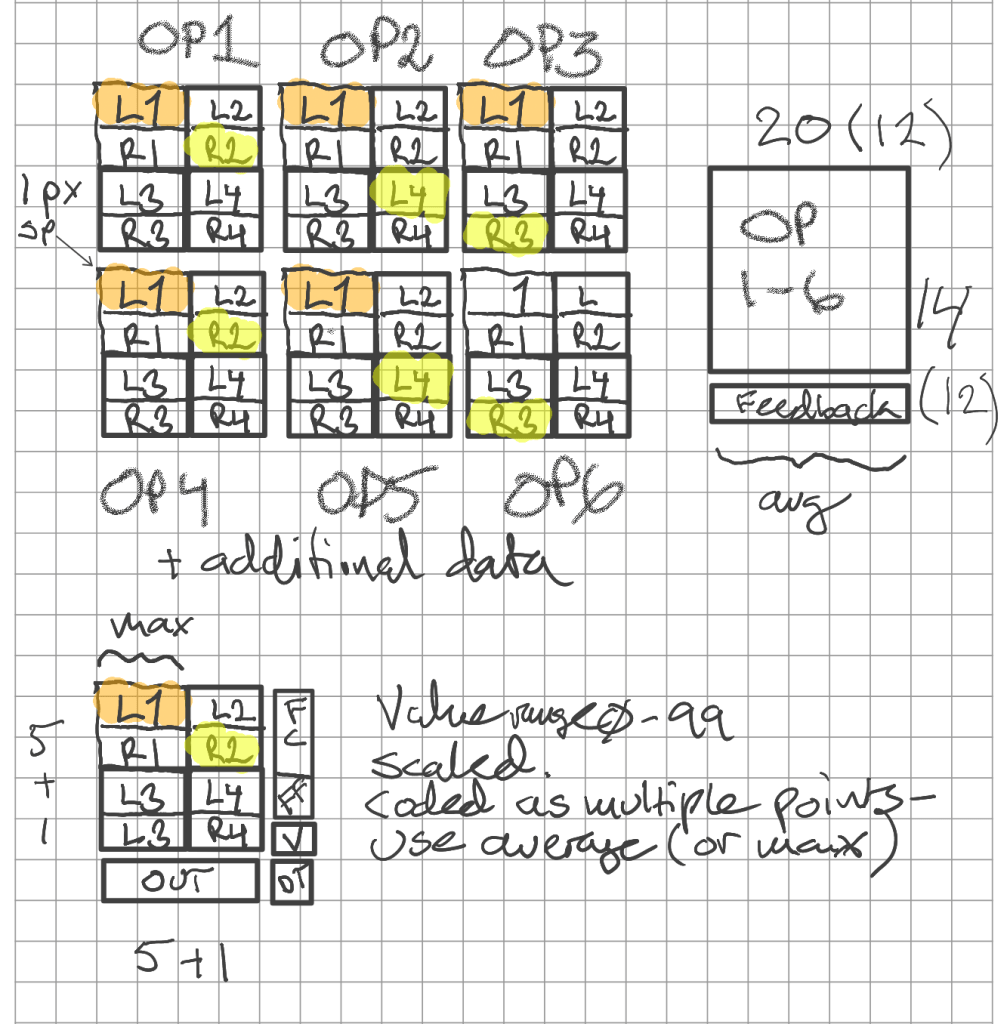 OP1 OP2 OP3
L1 L2 L1 L2 L1 L2
R1 R2 R1 R2 R1 R2
L3 L4 L3 L4 L3 L4
R3 R4 R3 R4 R3 R4
1px
sp
L1 L2 L1 L2 1 L
R1 R2 R1 R2 R1 R2
L3 L4 L3 L4 L3 L4
R3 R4 R3 R4 R3 R4
OP4 OP5 OP6
+ additional data
20 (12)
OP
1-6
14
Feedback (12)
avg
max
L1 L2
R1 R2
L3 L4
L3 R4
OUT
F
C
FF
V
DT
5
+
1
5+1
Value range ∅-99
scaled.
coded as multiple points-
use average (or max)